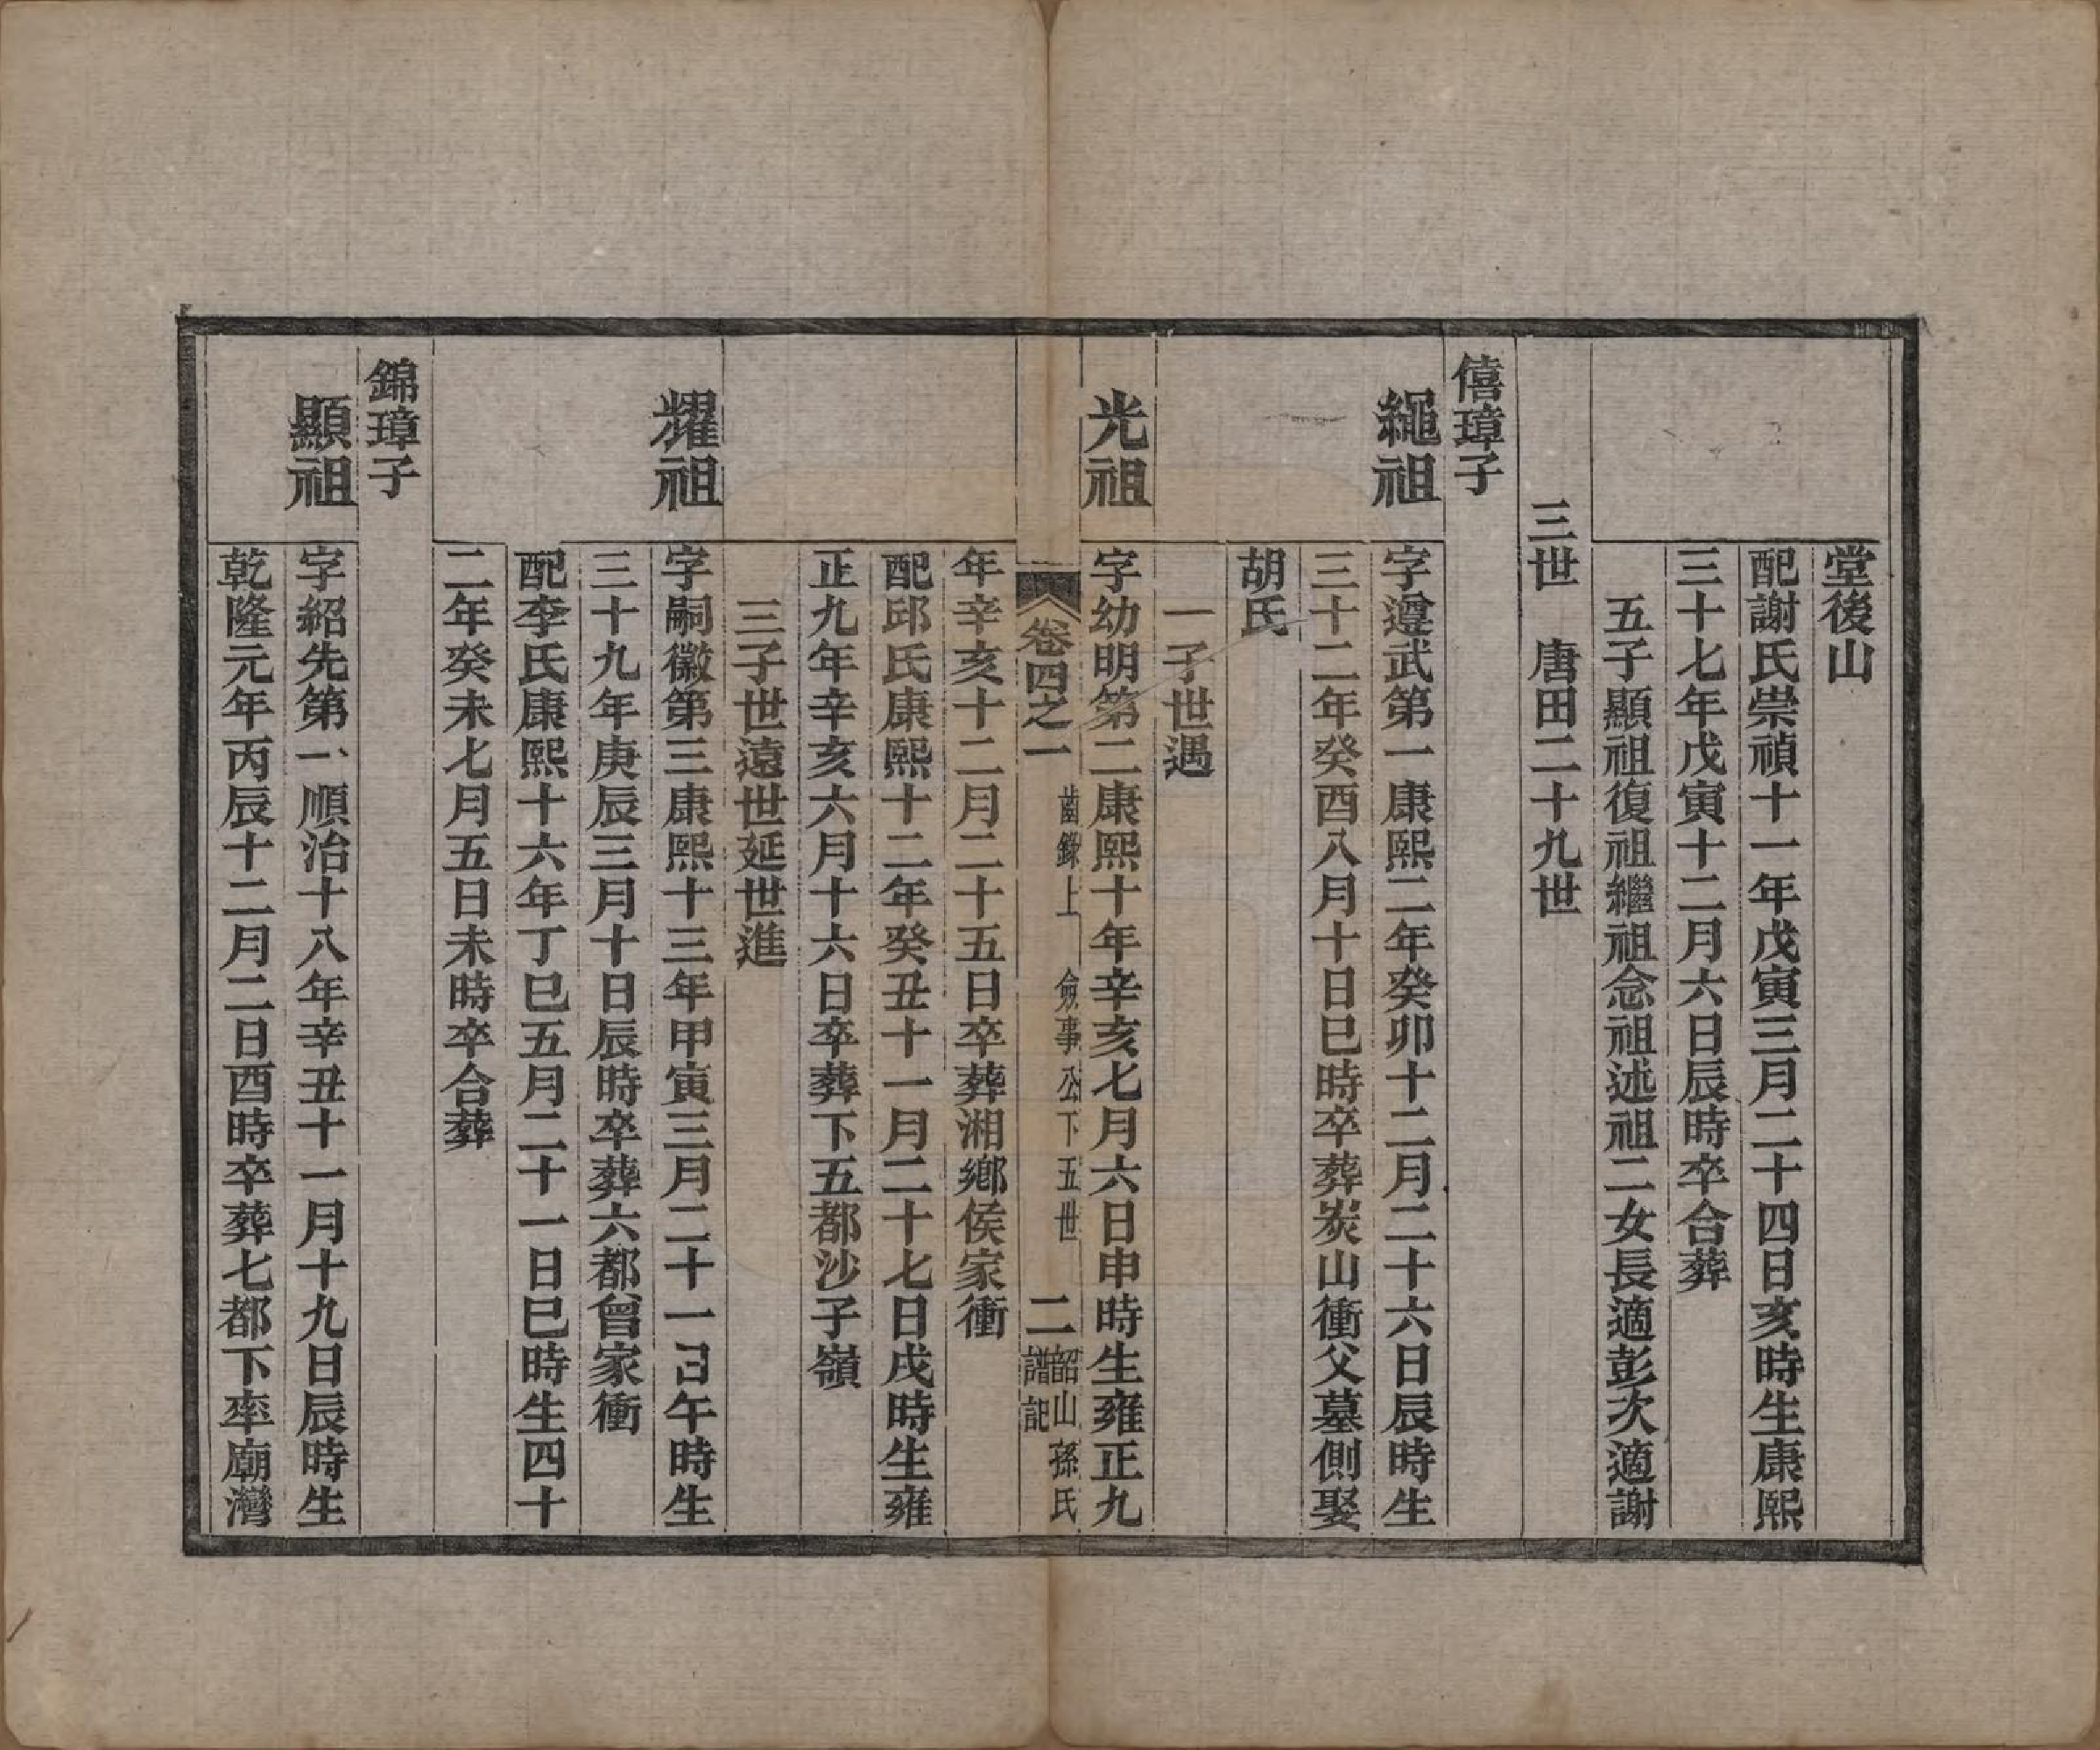 堂後山
配謝氏崇禎十一年戊寅三月二十四日亥時生康熙
三十七年戊寅十二月六日辰時卒合葬
五子顯祖復祖繼祖念祖述祖二女長適彭次適謝
三世　唐田二十九世
僖璋子
繩祖
字遵武第一康熙二年癸卯十二月二十六日辰時生
三十二年癸酉八月十日巳時卒葬炭山衝父墓側娶
胡氏
一子世遇
光祖
字幼明第二康熙十年辛亥七月六日申時生雍正九
卷四之一　齒錄上　僉事公下五世　二　韶山孫氏譜記
年辛亥十二月二十五日卒葬湘鄉侯家衝
配邱氏康熙十二年癸丑十一月二十七日戌時生雍
正九年辛亥六月十六日卒葬下五都沙子嶺
三子世遠世延世進
耀祖
字嗣徽第三康熙十三年甲寅三月二十一日午時生
三十九年庚辰三月十日辰時卒葬六都曾家衝
配李氏康熙十六年丁巳五月二十一日巳時生四十
二年癸未七月五日未時卒合葬
錦璋子
顯祖
字紹先第一順治十八年辛丑十一月十九日辰時生
乾隆元年丙辰十二月二日酉時卒葬七都下率廟灣